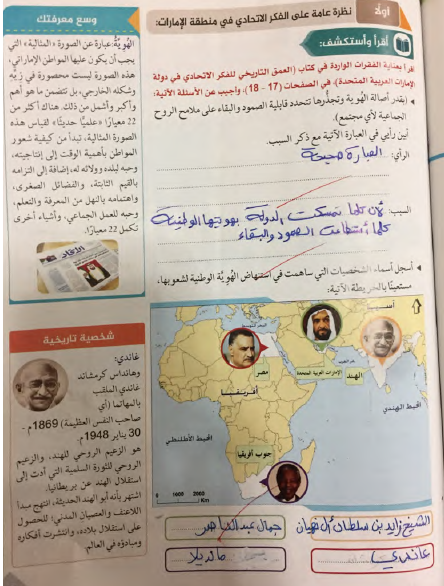 أولًا
نظرة عامة على الفكر الاتحادي في منطقة الإمارات:
أقرأ وأستكشف:
أقرأ بعناية الفقرات الواردة في كتاب (العمق التاريخي للفكر الاتحادي في دولة
الإمارات العربية المتحدة)، في الصفحات (17 - 18)، وأجيب عن الأسئلة الآتية:
(بقدر أصالة الهُوية وتجذُّرها تتحدد قابلية الصمود والبقاء على ملامح الروح
الجماعية لأي مجتمع).
أبين رأيي في العبارة الآتية مع ذكر السبب.
الرأي: العبارة صحيحة
السبب: لأن كلما تمسكت الدولة بهويتها الوطنية
كلما استطاعت الصمود والبقاء
أسجل أسماء الشخصيات التي ساهمت في استنهاض الهُويَّة الوطنية لشعوبها،
مستعينًا بالخريطة الآتية:
آسيا
مصر
الإمارات العربية المتحدة
بحر العرب
الهند
أفريقيا
المحيط الهندي
المحيط الأطلطي
جنوب أفريقيا
0 1000 2000
Km
الشيخ زايد بن سلطان آل نهيان
جمال عبد الناصر
غاندي
مانديلا
وسع معرفتك
الهُويَّةُ: عبارة عن الصورة «المثالية» التي
يجب أن يكون عليها المواطن الإماراتي،
هذه الصورة ليست محصورة في زيِّهِ
وشكله الخارجي، بل تتضمن ما هو أهم
وأكبر وأشمل من ذلك. هناك أكثر من
22 معيارًا «علميًّا حديثًا» لقياس هذه
الصورة المثالية، تبدأ من كيفية شعور
المواطن بأهمية الوقت إلى إنتاجيته،
وحبه لبلده وولائه له، إضافة إلى التزامه
بالقيم الثابتة، والفضائل الصغرى،
واهتمامه بالنهل من المعرفة والتعلم،
وحبه للعمل الجماعي، وأشياء أخرى
تكمل 22 معيارًا.
الاتحاد
شخصية تاريخية
غاندي:
وهانداس كرمشاند
غاندي الملقب
بالمهاتما (أي
صاحب النفس العظيمة) 1869م -
30 يناير 1948م.
هو الزعيم الروحي للهند، والزعيم
الروحي للثورة السلمية التي أدت إلى
استقلال الهند عن بريطانيا.
اشتهر بأنه أبو الهند الحديثة، انتهج مبدأ
اللاعنف والعصيان المدني؛ للحصول
على استقلال بلاده، وانتشرت أفكاره
ومبادؤه في العالم.